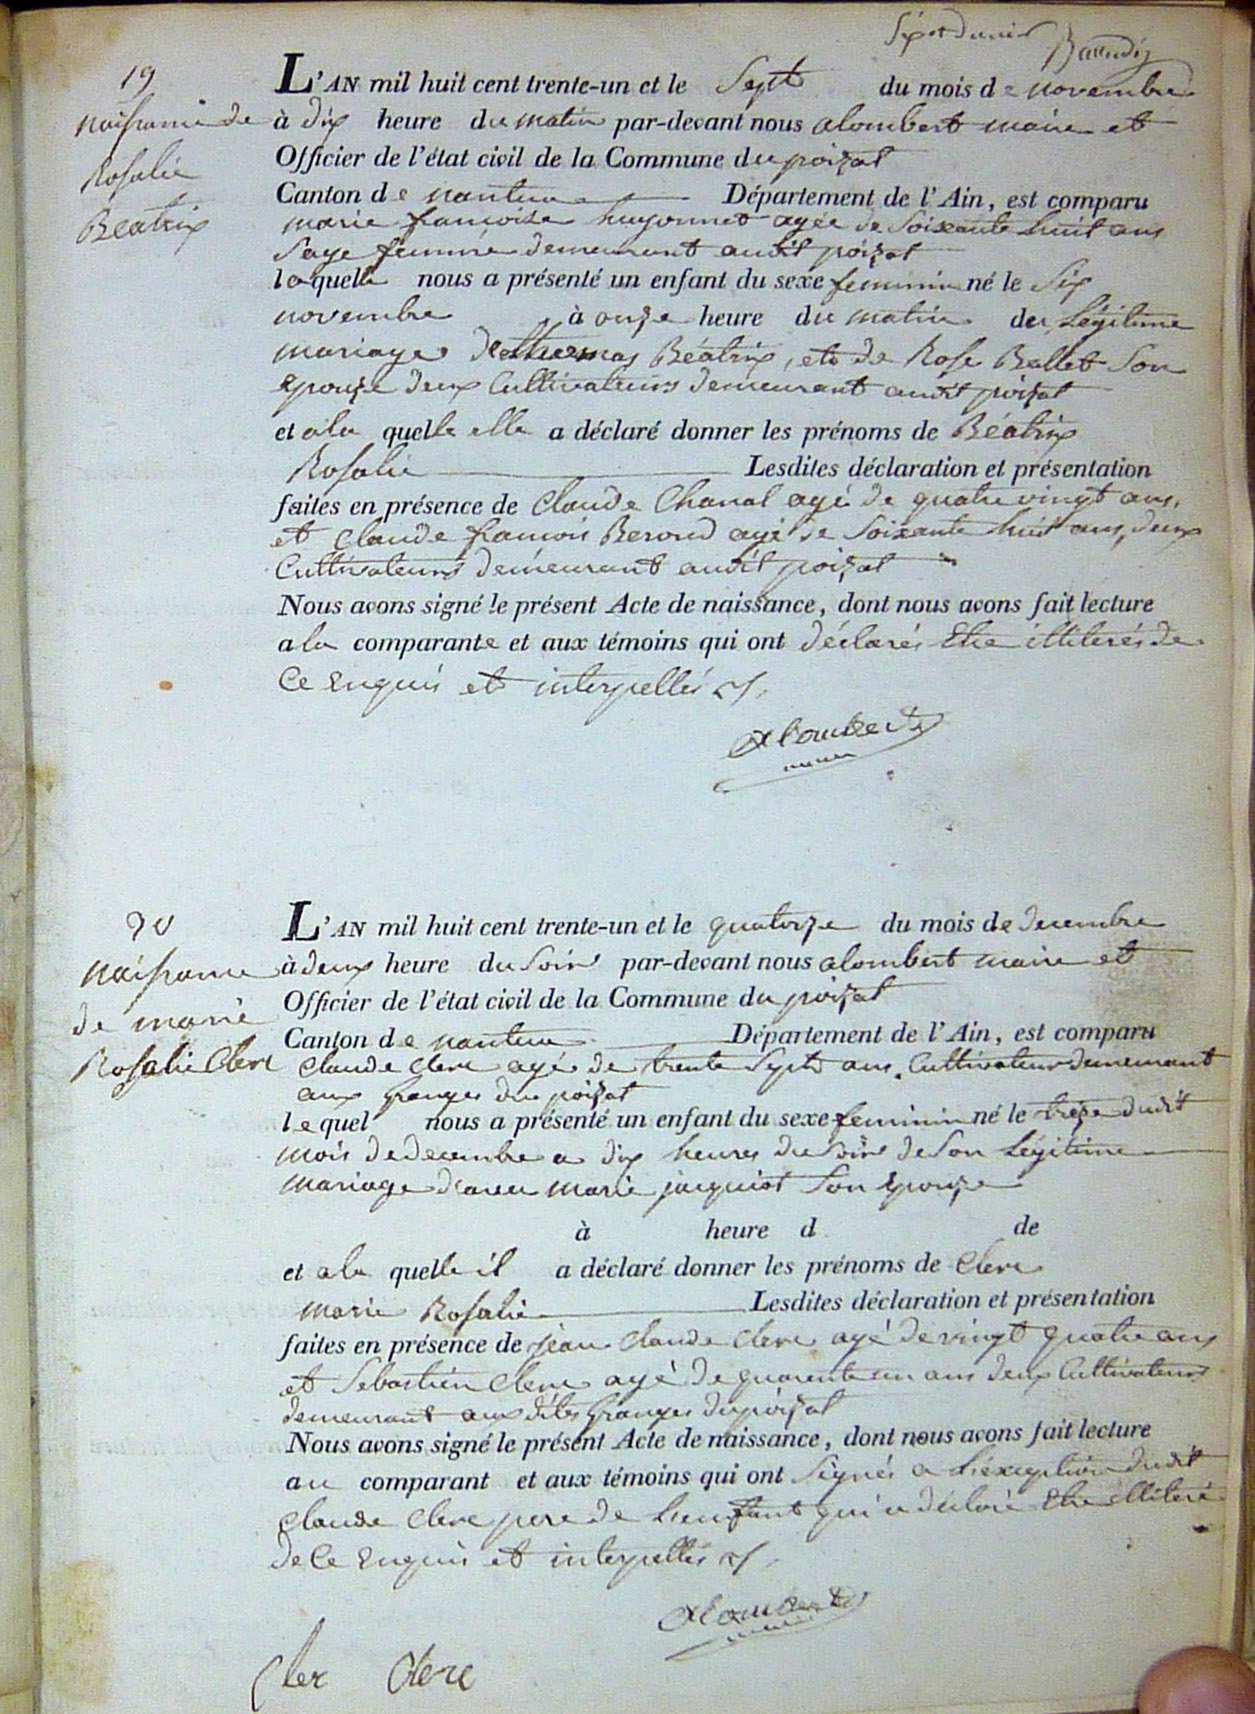 19
naissance de
Rosalie
Béatrix
L'AN mil huit cent trente-un et le Sept du mois de novembre
à dix heure du matin par-devant nous alombert maire et
Officier de l'état civil de la Commune du poizat
Canton de nantua Département de l'Ain, est comparu
marie françoise hugonnet agée de Soixante huit ans
Sage femme demeurant audit poizat
laquelle nous a présenté un enfant du sexe feminin né le Six
novembre à onze heure du matin du Légitime
mariage de thomas Béatrix, et de Rose Ballet Son
epouze deux Cultivateurs demeurant audit poizat
et a la quelle elle a déclaré donner les prénoms de Béatrix
Rosalie Lesdites déclaration et présentation
faites en présence de Claude Chanal agé de quatre vingt ans,
et Claude françois Beroud agé de Soixante huit ans, deux
Cultivateurs demeurant audit poizat
Nous avons signé le présent Acte de naissance, dont nous avons fait lecture
a la comparante et aux témoins qui ont déclarés Etre illiterés de
Ce Enquis et interpellés
alombert
20
naissance
de marie
Rosalie Clerc
L'AN mil huit cent trente-un et le quatorze du mois de decembre
à deux heure du Soir par-devant nous alombert maire et
Officier de l'état civil de la Commune du poizat
Canton de nantua Département de l'Ain, est comparu
Claude Clerc agé de trente Sept ans, Cultivateur demeurant
aux Granges du poizat
lequel nous a présenté un enfant du sexe feminin né le treze dudit
mois de decembre a dix heures du Soir de Son Légitime
mariage d'avec marie jacquiot Son Epouze
à heure d de
et a la quelle il a déclaré donner les prénoms de Clerc
marie Rosalie Lesdites déclaration et présentation
faites en présence de jean Claude Clerc agé de vingt quatre ans
et Sebastien Clerc agé de quarente un ans deux Cultivateurs
demeurant aux dites Granges du poizat
Nous avons signé le présent Acte de naissance, dont nous avons fait lecture
au comparant et aux témoins qui ont Signés a L'éxception dudit
Claude Clerc pere de L'enfant qui a déclaré Etre illiteré
de Ce Enquis et interpellés
alombert
Cler Clerc